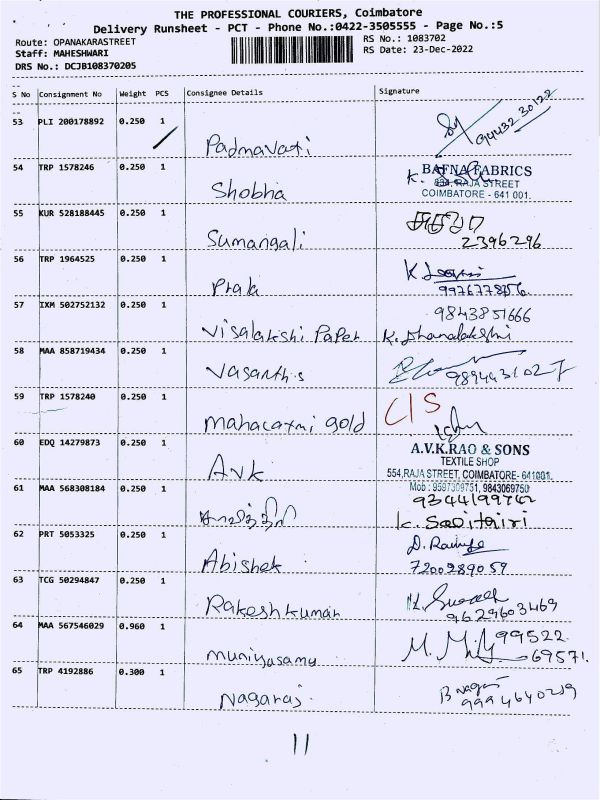 THE PROFESSIONAL COURIERS, Coimbatore
Delivery Runsheet - PCT - Phone No.:0422-3505555 - Page No.:5
Route: OPANAKARASTREET
Staff: MAHESHWARI
DRS No.: DCJB108370205
RS No.: 1083702
RS Date: 23-Dec-2022
S No Consignment No Weight PCS Consignee Details Signature
53 PLI 200178892 0.250 1 Padmavati
54 TRP 1578246 0.250 1 Shobha
BAFNA FABRICS
RAJA STREET
COIMBATORE - 641 001.
55 KUR 528188445 0.250 1 Sumangali
2396296
56 TRP 1964525 0.250 1
57 IXM 502752132 0.250 1 Visalakshi Paper
9843851666
K. Dhanalakshmi
58 MAA 858719434 0.250 1 Vasanths
59 TRP 1578240 0.250 1 gold
C/S
60 EDQ 14279873 0.250 1 Avk
A.V.K.RAO & SONS
TEXTILE SHOP
554,RAJA STREET, COIMBATORE- 641001.
Mob : 9597309751, 9843069750
61 MAA 568308184 0.250 1
62 PRT 5053325 0.250 1 Abishek
7200289059
63 TCG 50294847 0.250 1 Rakesh kumar
9629603469
64 MAA 567546029 0.960 1 muniyasamy
99522
69571
65 TRP 4192886 0.300 1 Nagaraj
11